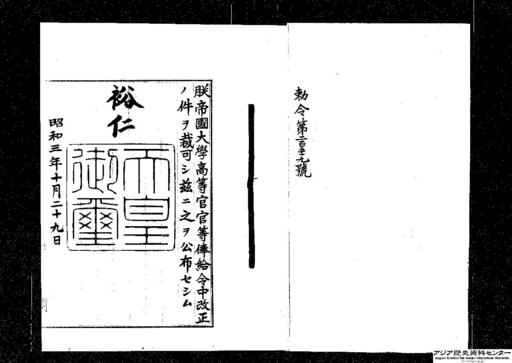 勅令第二百五十九號
朕帝國大學高等官官等俸給令中改正
ノ件ヲ裁可シ茲ニ之ヲ公布セシム
裕仁
天皇
御璽
昭和三年十月二十九日
アジア歴史資料センター
Japan Center for Asian Historical Records